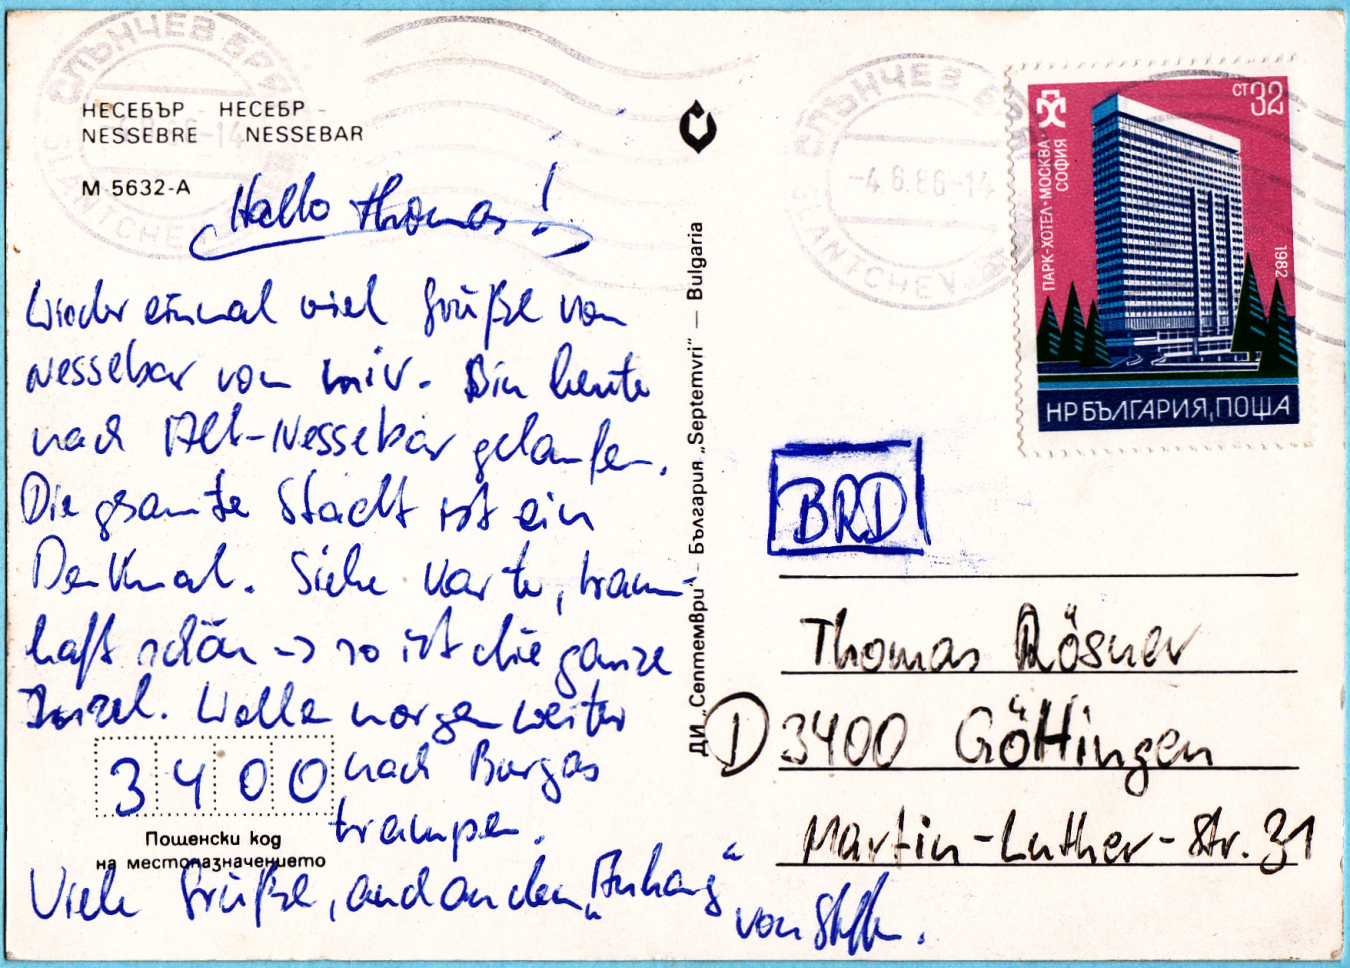 СЛЪНЧЕВ БРЯГ
SLANTCHEV
НЕСЕБЪР - НЕСЕБР -
NESSEBRE NESSEBAR
M 5632-A
Hallo Thomas!
Wieder einmal viel Grüße von
Nessebar von mir. Bin heute
nach Alt-Nessebar gelaufen.
Die gesamte Stadt ist ein
Denkmal. Siehe Karte, traum-
haft schön -> so ist die ganze
Insel. Wolle morgen weiter
nach Burgas
trampen.
3400
Пощенски код
на местоназначението
Viele Grüße, auch an den „Anhang“
von Steffen.
ДИ „Септември“ — България „Septemvri“ — Bulgaria
СЛЪНЧЕВ БРЯГ
-4.6.86-14
SLANTCHEV
ст 32
ПАРК-ХОТЕЛ·МОСКВА·
СОФИЯ
1982
НР БЪЛГАРИЯ, ПОЩА
BRD
Thomas Rösner
D 3400 Göttingen
Martin-Luther-Str. 31